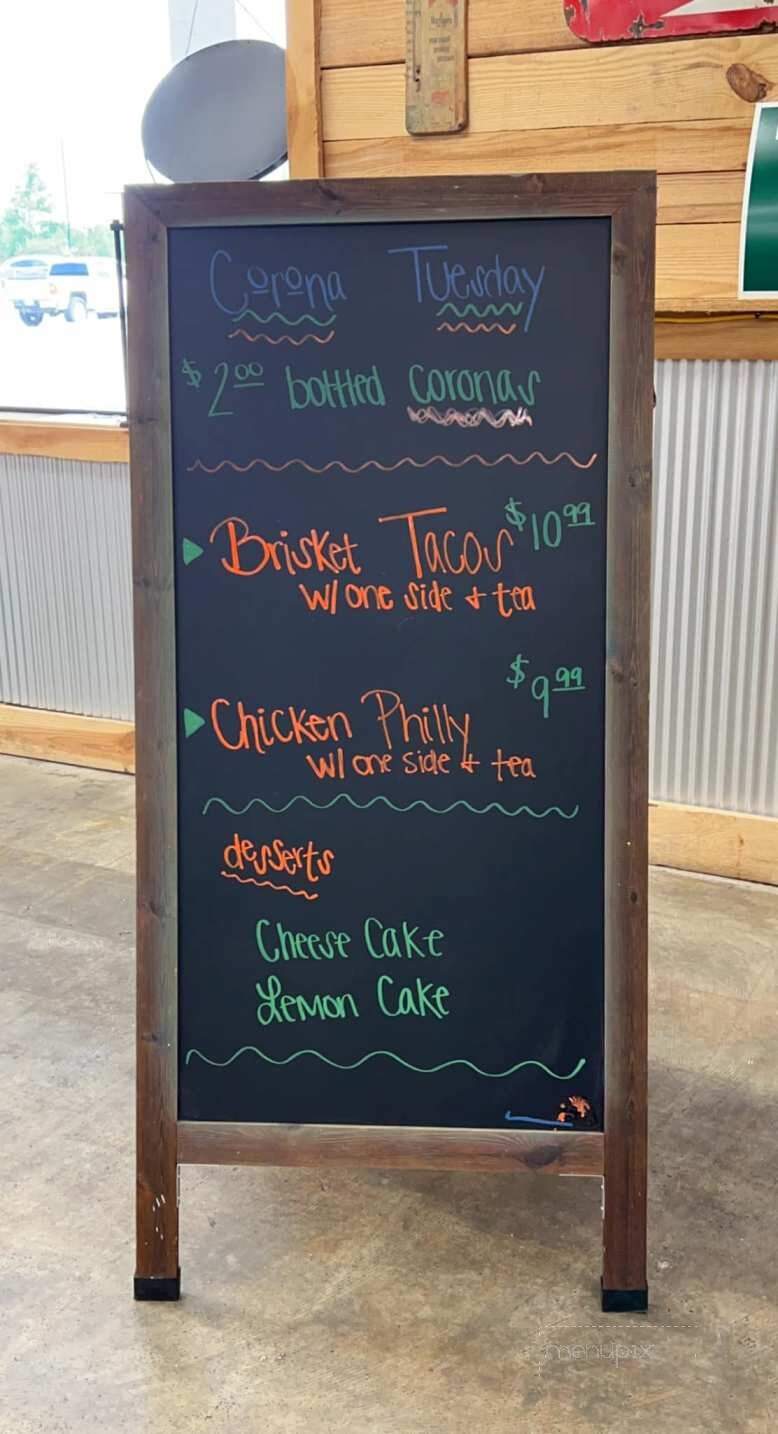 Corona Tuesday
$2.00 bottled coronas
Brisket Tacos $10.99
w/ one side + tea
$9.99
Chicken Philly
w/ one side + tea
desserts
Cheese Cake
Lemon Cake
menupix